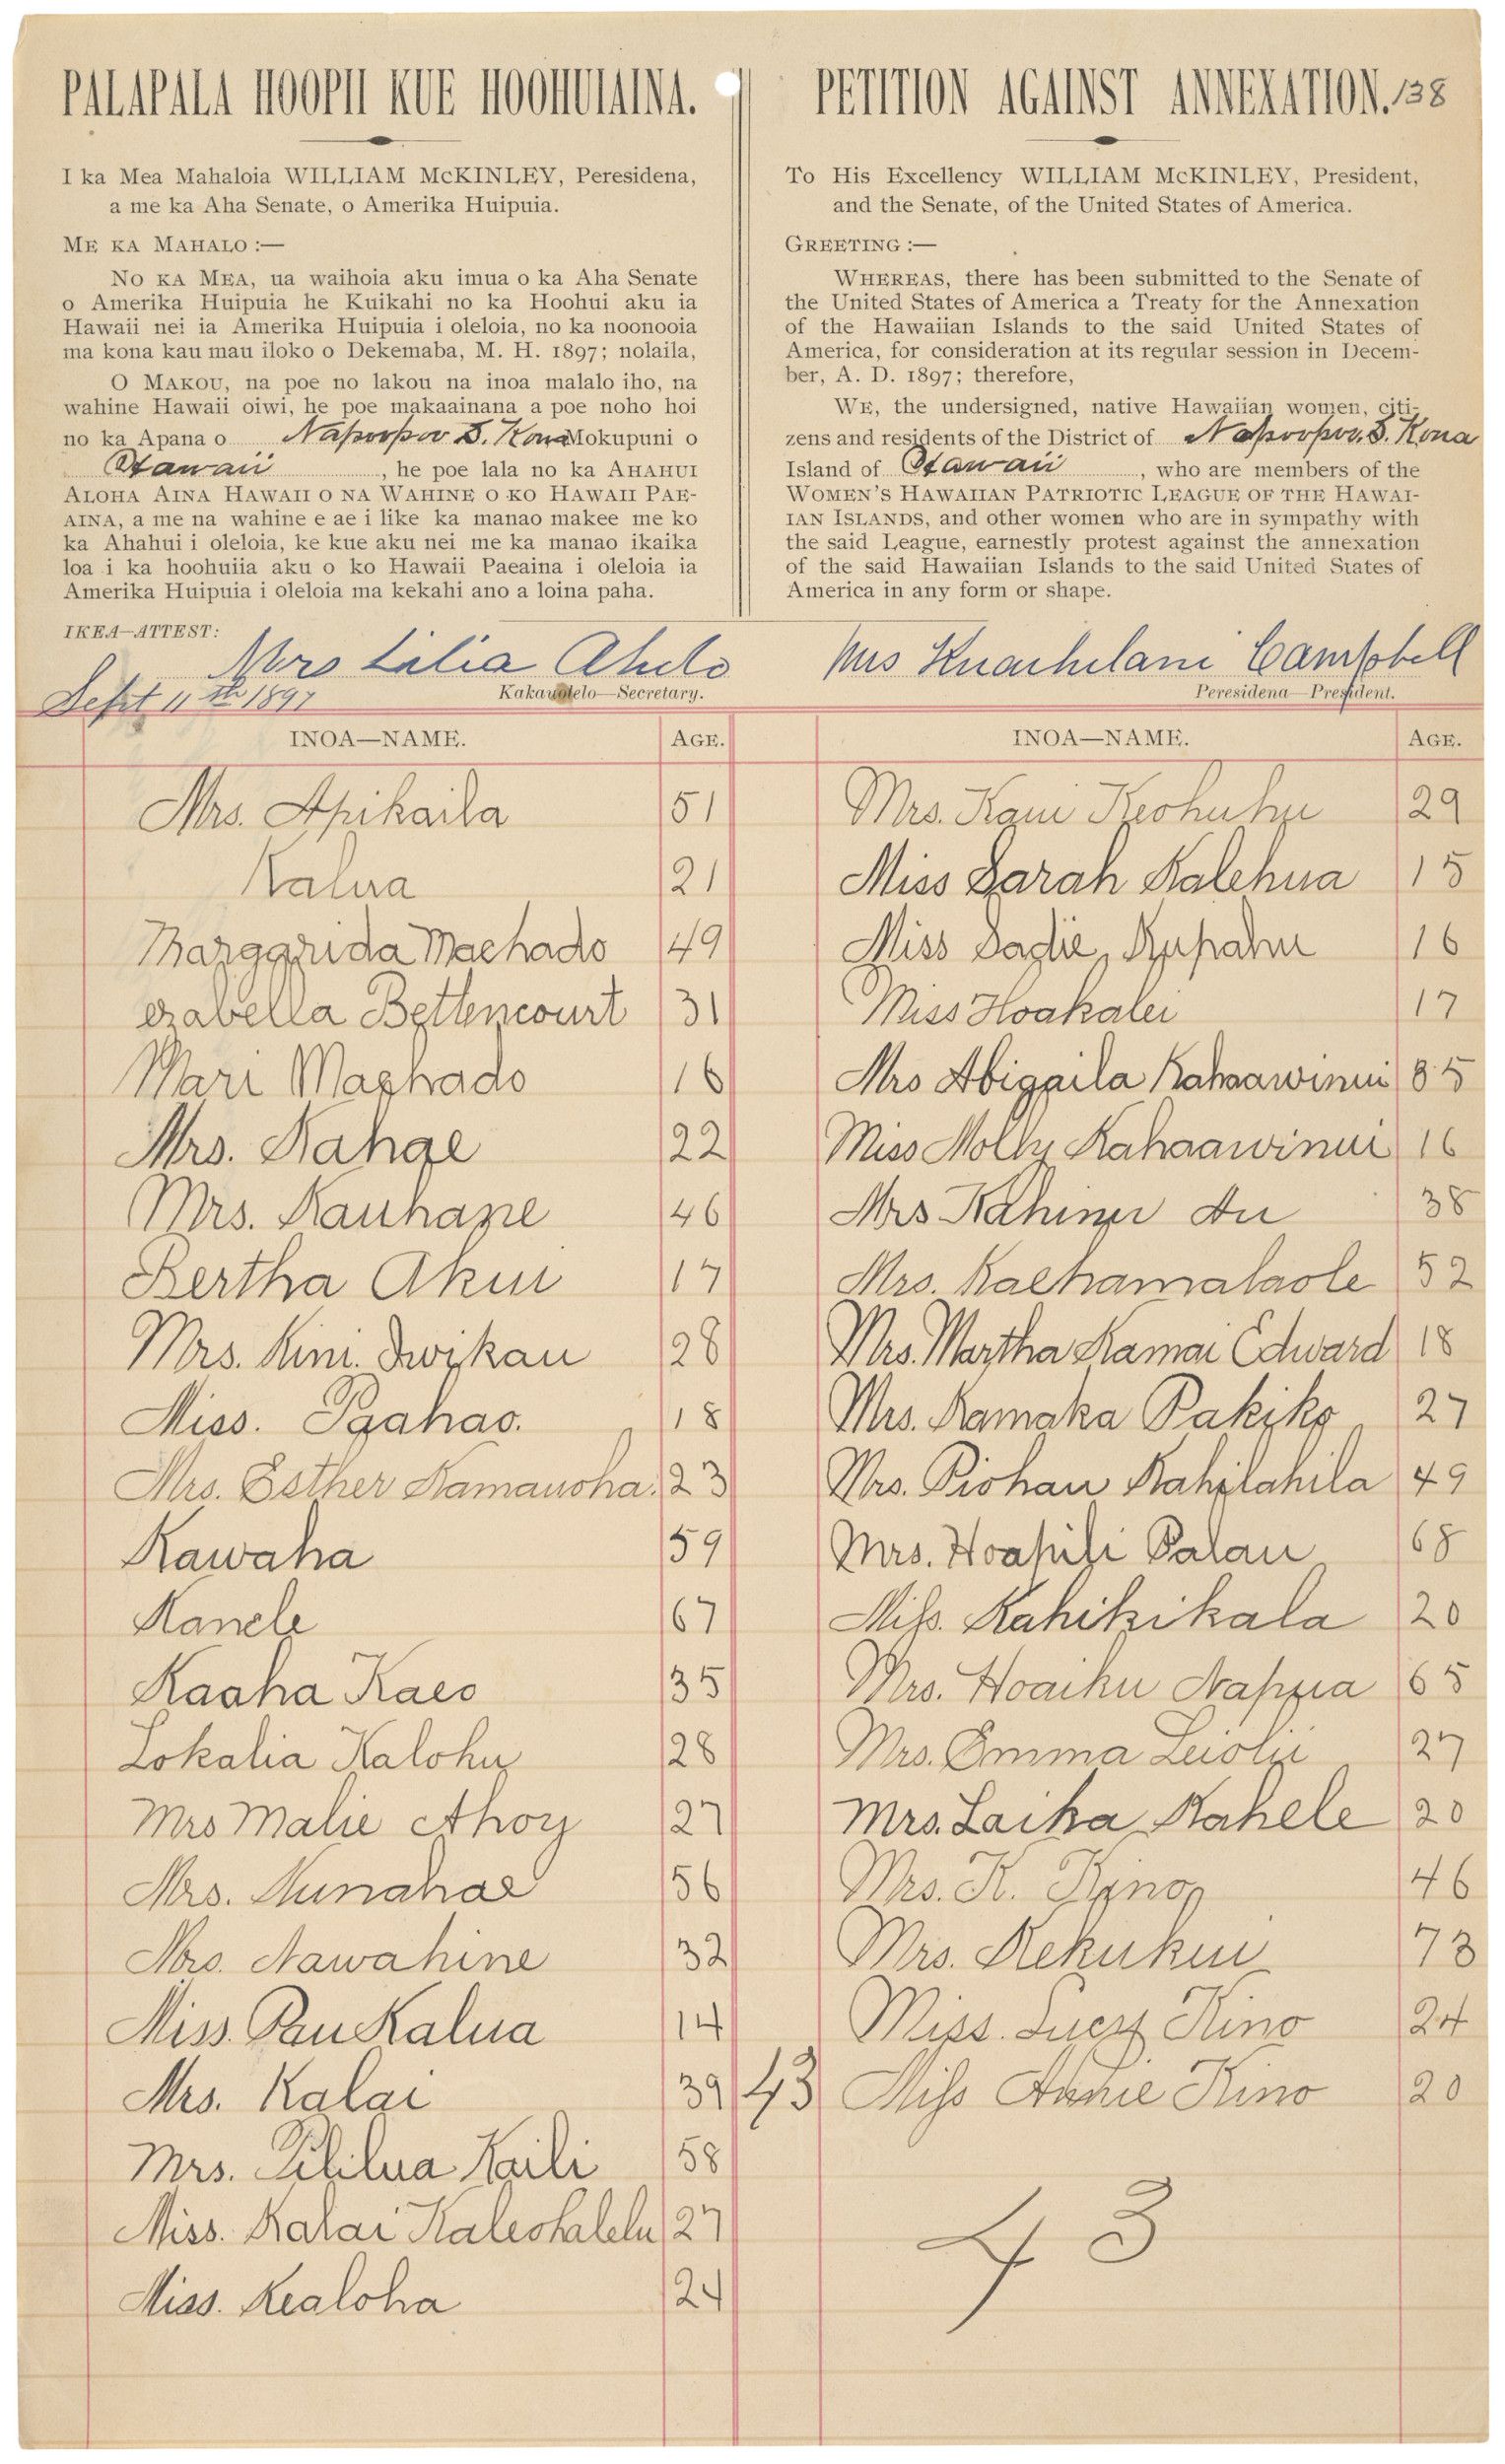 PALAPALA HOOPII KUE HOOHUIAINA.
I ka Mea Mahaloia WILLIAM McKINLEY, Peresidena,
a me ka Aha Senate, o Amerika Huipuia.
ME KA MAHALO :—
NO KA MEA, ua waihoia aku imua o ka Aha Senate
o Amerika Huipuia he Kuikahi no ka Hoohui aku ia
Hawaii nei ia Amerika Huipuia i oleloia, no ka noonooia
ma kona kau mau iloko o Dekemaba, M. H. 1897; nolaila,
O MAKOU, na poe no lakou na inoa malalo iho, na
wahine Hawaii oiwi, he poe makaainana a poe noho hoi
no ka Apana o Napoopoo S. Kona Mokupuni o
Hawaii, he poe lala no ka AHAHUI
ALOHA AINA HAWAII O NA WAHINE O KO HAWAII PAE-
AINA, a me na wahine e ae i like ka manao makee me ko
ka Ahahui i oleloia, ke kue aku nei me ka manao ikaika
loa i ka hoohuiia aku o ko Hawaii Paeaina i oleloia ia
Amerika Huipuia i oleloia ma kekahi ano a loina paha.
PETITION AGAINST ANNEXATION. 138
To His Excellency WILLIAM McKINLEY, President,
and the Senate, of the United States of America.
GREETING :—
WHEREAS, there has been submitted to the Senate of
the United States of America a Treaty for the Annexation
of the Hawaiian Islands to the said United States of
America, for consideration at its regular session in Decem-
ber, A. D. 1897; therefore,
WE, the undersigned, native Hawaiian women, citi-
zens and residents of the District of Napoopoo, S. Kona
Island of Hawaii, who are members of the
WOMEN'S HAWAIIAN PATRIOTIC LEAGUE OF THE HAWAI-
IAN ISLANDS, and other women who are in sympathy with
the said League, earnestly protest against the annexation
of the said Hawaiian Islands to the said United States of
America in any form or shape.
IKEA—ATTEST:
Mrs Lilia Aholo
Sept 11th 1897
Kakauolelo—Secretary.
Mrs Kuaihelani Campbell
Peresidena—President.
INOA—NAME. AGE.
Mrs. Apikaila 51
Kalua 21
Margarida Machado 49
ezabella Bettencourt 31
Mari Machado 16
Mrs. Kahae 22
Mrs. Kauhane 46
Bertha Akui 17
Mrs. Kini Iwikau 28
Miss. Paahao. 18
Mrs. Esther Kamauoha. 23
Kawaha 59
Kanele 67
Kaaha Kaeo 35
Lokalia Kalohu 28
Mrs Malie Ahoy 27
Mrs. Nunahae 56
Mrs. Nawahine 32
Miss. Pau Kalua 14
Mrs. Kalai 39
Mrs. Pililua Kaili 58
Miss. Kalai Kaleohalelu 27
Miss. Kealoha 24
INOA—NAME. AGE.
Mrs. Kaui Keohuhu 29
Miss Sarah Kalehua 15
Miss Sadie Kupahu 16
Miss Hoakalei 17
Mrs Abigaila Kahaawinui 85
Miss Molly Kahaawinui 16
Mrs Kahinu Au 38
Mrs. Kaehamalaole 52
Mrs. Martha Kamai Edward 18
Mrs. Kamaka Pakiko 27
Mrs. Piohau Kahilahila 49
Mrs. Hoapili Palau 68
Miss. Kahikikala 20
Mrs. Hoaiku Napua 65
Mrs. Emma Leiolii 27
Mrs. Laika Kahele 20
Mrs. K. Kino 46
Mrs. Kekukui 73
Miss. Lucy Kino 24
43 Miss Annie Kino 20
43